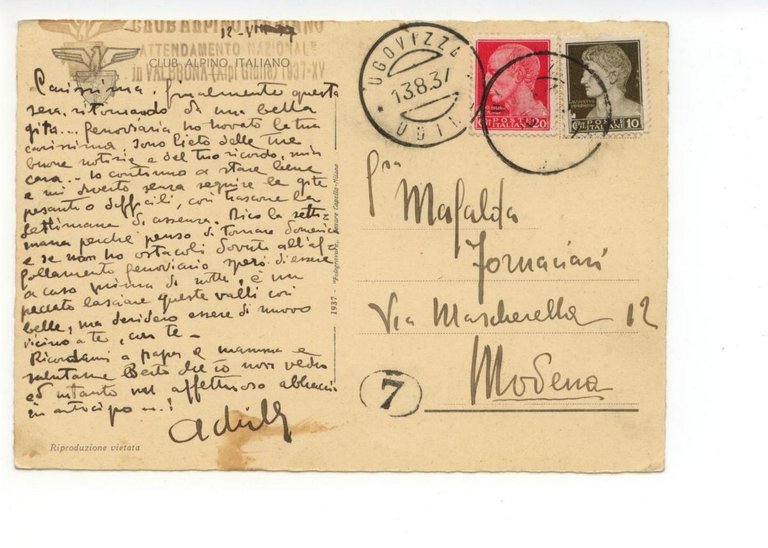 CLUB ALPINO ITALIANO
ATTENDAMENTO NAZIONALE
in VALBRUNA (Alpi Giulie) 1937-XV
CLUB ALPINO ITALIANO
Carissima, finalmente questa
sera, ritornando da una bella
gita... ferroviaria ho trovato la tua
carissima. Sono lieto delle tue
buone notizie e del tuo ricordo, mia
cara... Io continuo a stare bene
e mi diverto senza seguire le gite
pesanti o difficili, così trascorre la
settimana di assenza. Dico la setti
mana perché penso di tornare domenica
e se non ho ostacoli dovuti all'af
follamento ferroviario spero di essere
a casa prima di notte, è un
peccato lasciare queste valli così
belle, ma desidero essere di nuovo
vicino a te, con te -
Ricordami a papà e mamma e
salutame che io non vedo
ed intanto un affettuoso abbraccio
in anticipo ...!
Riproduzione vietata
1937
UGOVIZZA
13.8.37
UDINE
POSTE ITALIANE
20
POSTE ITALIANE
10
Mafalda
Fornaciari
Via Mascherella 12
Modena
7